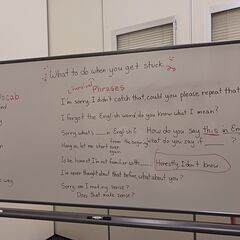 What to do when you get stuck
(survival) Phrases
Vocab
I'm sorry, I didn't catch that, could you please, repeat that
I forgot the English word, do you know what I mean?
Sorry, what's ___ in English? How do you say this in En
Hang on, let me start over from the beginning What do you say if ___
again
To be honest, I'm not familiar with ___. Honestly, I don't know.
I've never thought about that before, what about you?
way
Sorry, am I making sense?
Does that make sense?